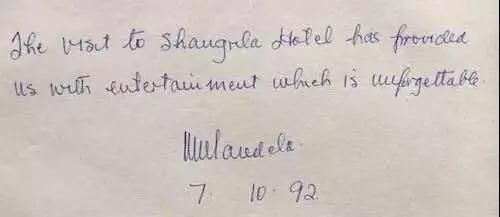 The visit to Shangrila Hotel has provided
us with entertainment which is unforgettable.
NMandela.
7. 10. 92